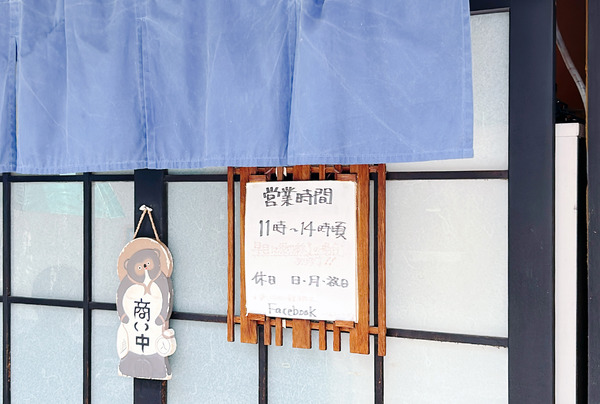 営業時間
11時〜14時頃
休日 日・月・祝日
Facebook
商い中